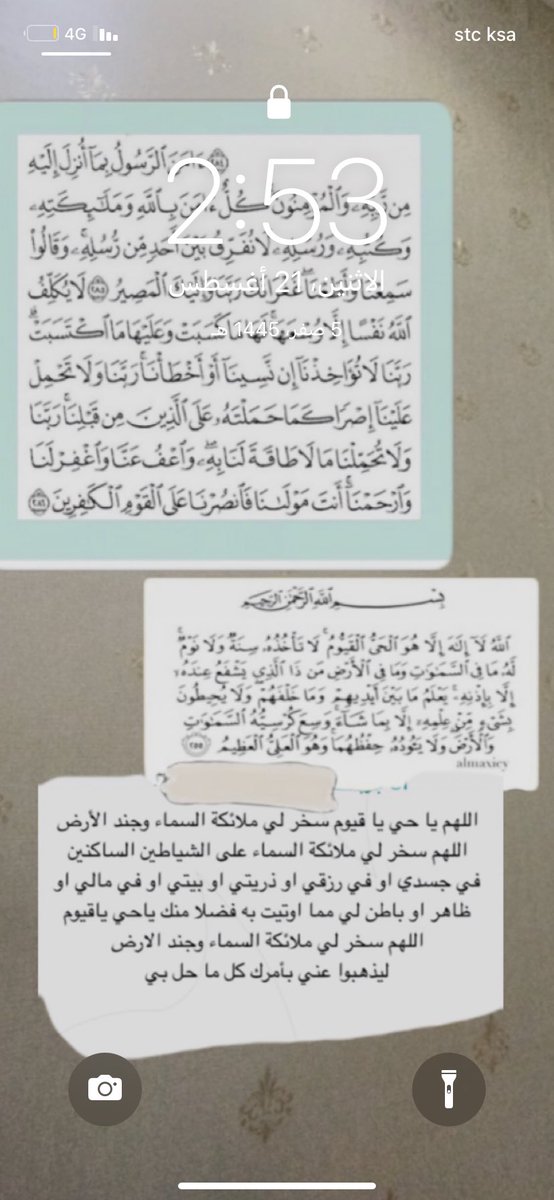 4G
stc ksa
ءَامَنَ ٱلرَّسُولُ بِمَآ أُنزِلَ إِلَيْهِ
2:53
مِن رَّبِّهِۦ وَٱلْمُؤْمِنُونَ كُلٌّ ءَامَنَ بِٱللَّهِ وَمَلَٰٓئِكَتِهِۦ
وَكُتُبِهِۦ وَرُسُلِهِۦ لَا نُفَرِّقُ بَيْنَ أَحَدٍ مِّن رُّسُلِهِۦ وَقَالُوا۟
الاثنين، 21 أغسطس
سَمِعْنَا وَأَطَعْنَا غُفْرَانَكَ رَبَّنَا وَإِلَيْكَ ٱلْمَصِيرُ ٢٨٥ لَا يُكَلِّفُ
5 صفر، 1445 هـ
ٱللَّهُ نَفْسًا إِلَّا وُسْعَهَا لَهَا مَا كَسَبَتْ وَعَلَيْهَا مَا ٱكْتَسَبَتْ
رَبَّنَا لَا تُؤَاخِذْنَآ إِن نَّسِينَآ أَوْ أَخْطَأْنَا رَبَّنَا وَلَا تَحْمِلْ
عَلَيْنَآ إِصْرًا كَمَا حَمَلْتَهُۥ عَلَى ٱلَّذِينَ مِن قَبْلِنَا رَبَّنَا
وَلَا تُحَمِّلْنَا مَا لَا طَاقَةَ لَنَا بِهِۦ وَٱعْفُ عَنَّا وَٱغْفِرْ لَنَا
وَٱرْحَمْنَآ أَنتَ مَوْلَىٰنَا فَٱنصُرْنَا عَلَى ٱلْقَوْمِ ٱلْكَٰفِرِينَ ٢٨٦
بِسْمِ ٱللَّهِ ٱلرَّحْمَٰنِ ٱلرَّحِيمِ
ٱللَّهُ لَآ إِلَٰهَ إِلَّا هُوَ ٱلْحَىُّ ٱلْقَيُّومُ لَا تَأْخُذُهُۥ سِنَةٌ وَلَا نَوْمٌ
لَّهُۥ مَا فِى ٱلسَّمَٰوَٰتِ وَمَا فِى ٱلْأَرْضِ مَن ذَا ٱلَّذِى يَشْفَعُ عِندَهُۥٓ
إِلَّا بِإِذْنِهِۦ يَعْلَمُ مَا بَيْنَ أَيْدِيهِمْ وَمَا خَلْفَهُمْ وَلَا يُحِيطُونَ
بِشَىْءٍ مِّنْ عِلْمِهِۦٓ إِلَّا بِمَا شَآءَ وَسِعَ كُرْسِيُّهُ ٱلسَّمَٰوَٰتِ
وَٱلْأَرْضَ وَلَا يَـُٔودُهُۥ حِفْظُهُمَا وَهُوَ ٱلْعَلِىُّ ٱلْعَظِيمُ ٢٥٥
almaxicy
اللهم يا حي يا قيوم سخر لي ملائكة السماء وجند الأرض
اللهم سخر لي ملائكة السماء على الشياطين الساكنين
في جسدي او في رزقي او ذريتي او بيتي او في مالي او
ظاهر او باطن لي مما اوتيت به فضلا منك ياحي ياقيوم
اللهم سخر لي ملائكة السماء وجند الارض
ليذهبوا عني بأمرك كل ما حل بي